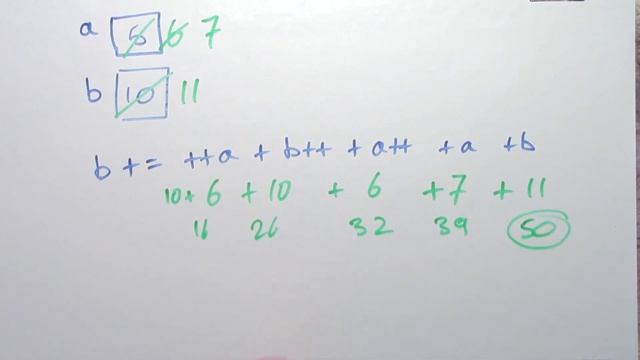 a 5 6 7
b 10 11
b += ++a + b++ + a++ + a + b
10 + 6 + 10 + 6 + 7 + 11
16 26 32 39 50